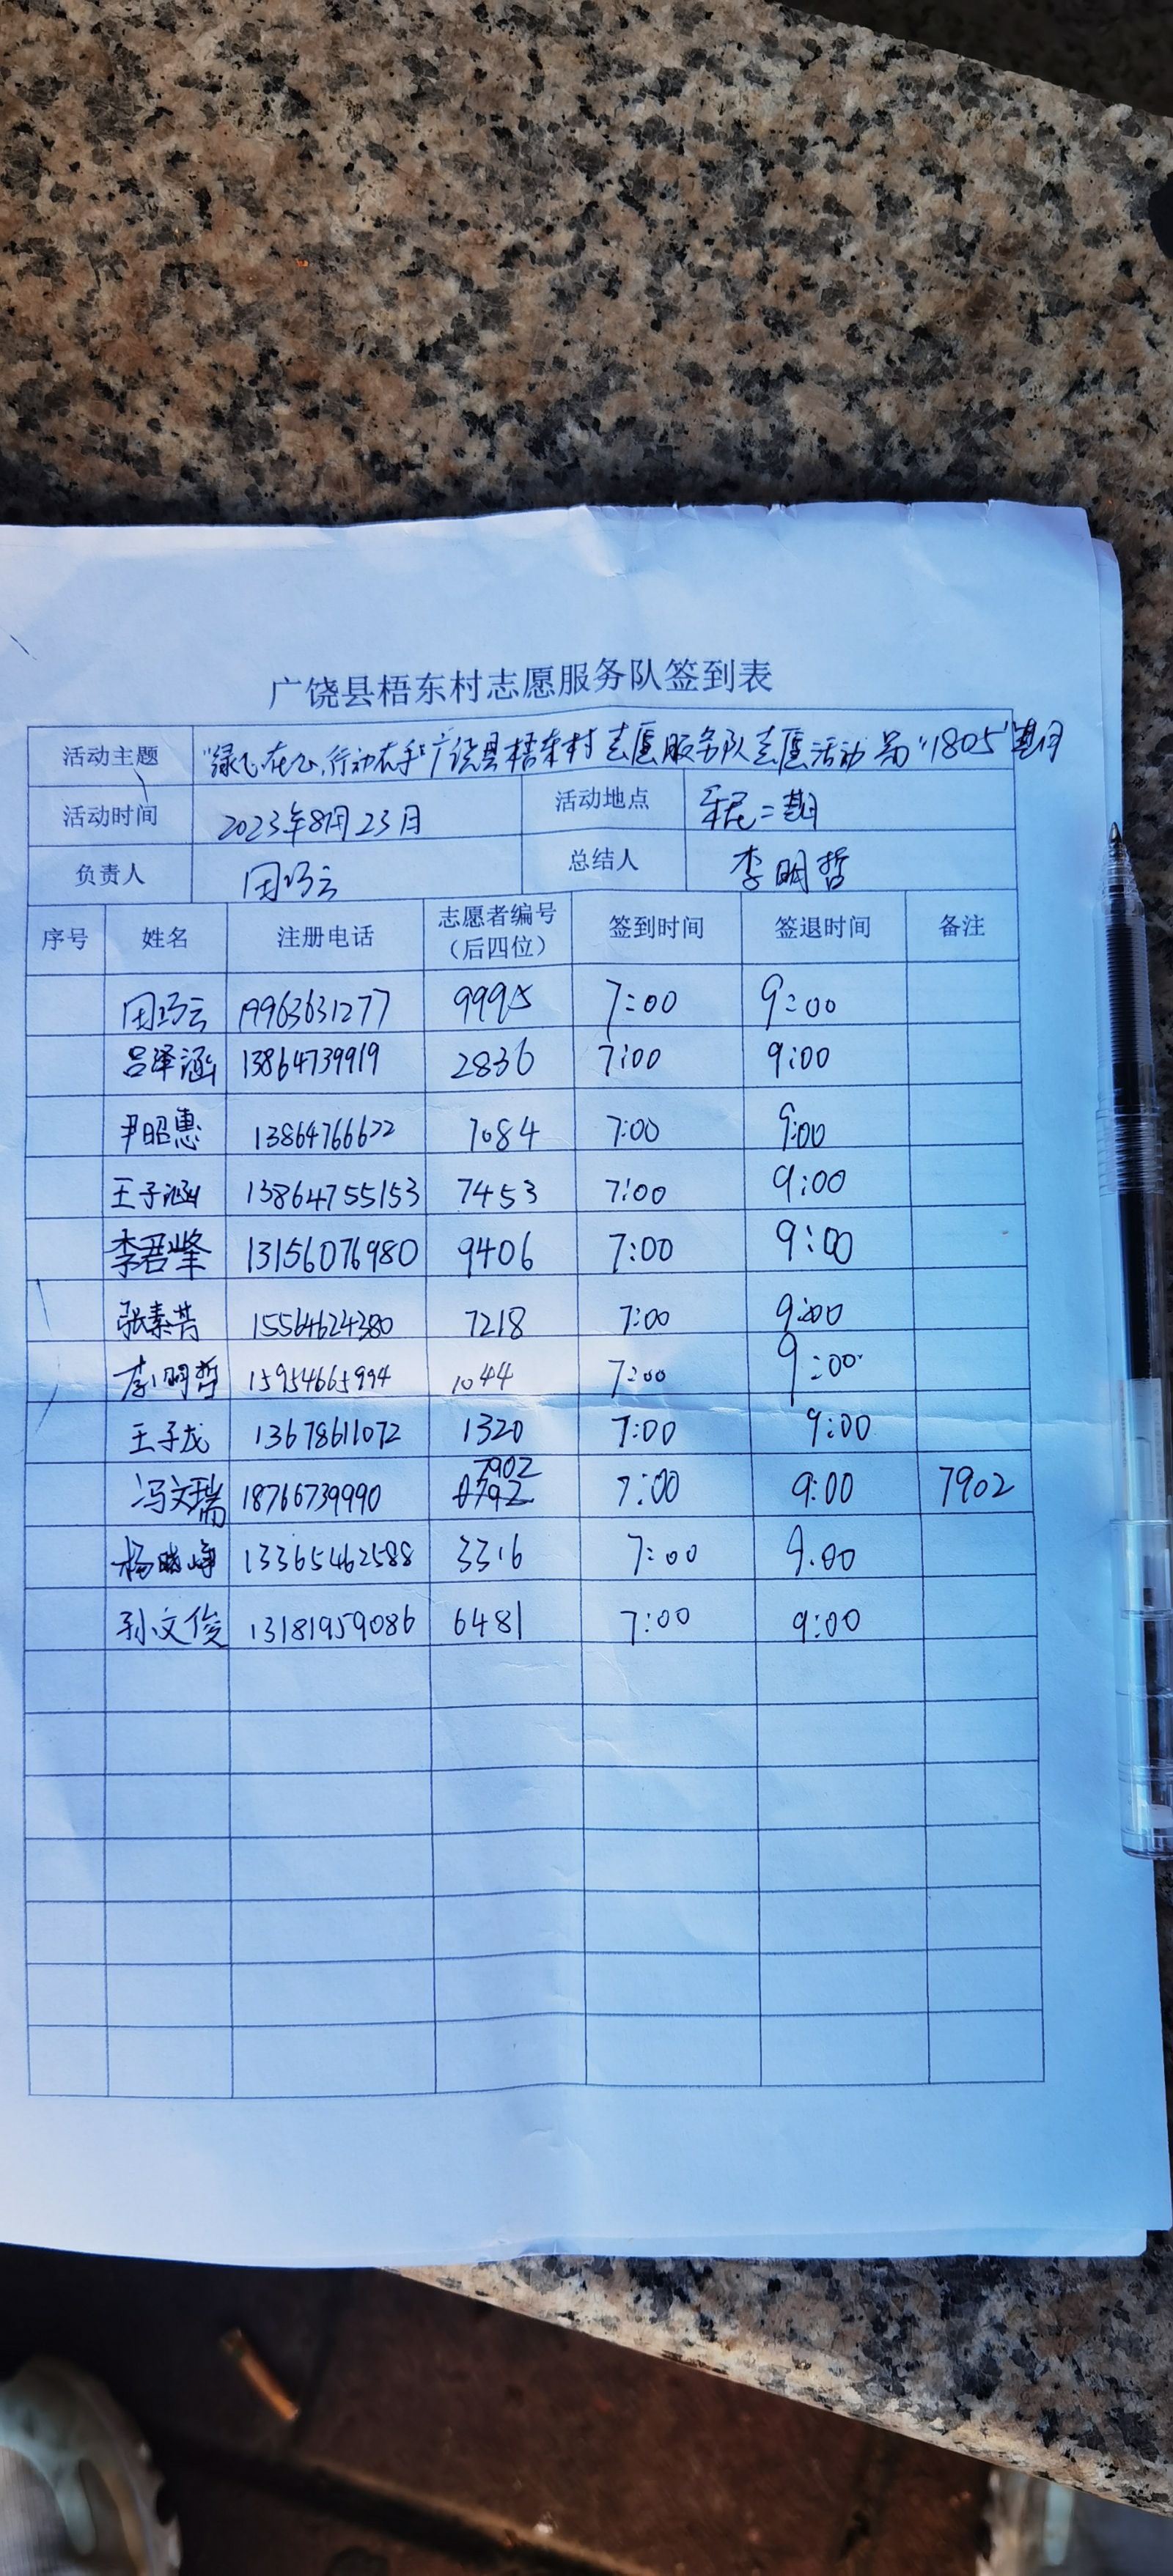 广饶县梧东村志愿服务队签到表
活动主题 "绿飞在心,行动在手"广饶县梧东村志愿服务队志愿活动第"1805"期
活动时间 2023年8月23日 活动地点 乐民二期
负责人 田巧云 总结人 李明哲
序号 姓名 注册电话 志愿者编号（后四位） 签到时间 签退时间 备注
田巧云 19963631277 9995 7:00 9:00
吕泽涵 13864739919 2836 7:00 9:00
尹昭惠 13864766622 7084 7:00 9:00
王子涵 13864755153 7453 7:00 9:00
李君峰 13156076980 9406 7:00 9:00
张素芳 15564624380 7218 7:00 9:00
李明哲 15954665994 1044 7:00 9:00
王子龙 13678611072 1320 7:00 9:00
冯文瑞 18766739990 7902 7:00 9:00 7902
杨晓峰 13365462588 3316 7:00 9:00
孙文俊 13181959086 6481 7:00 9:00